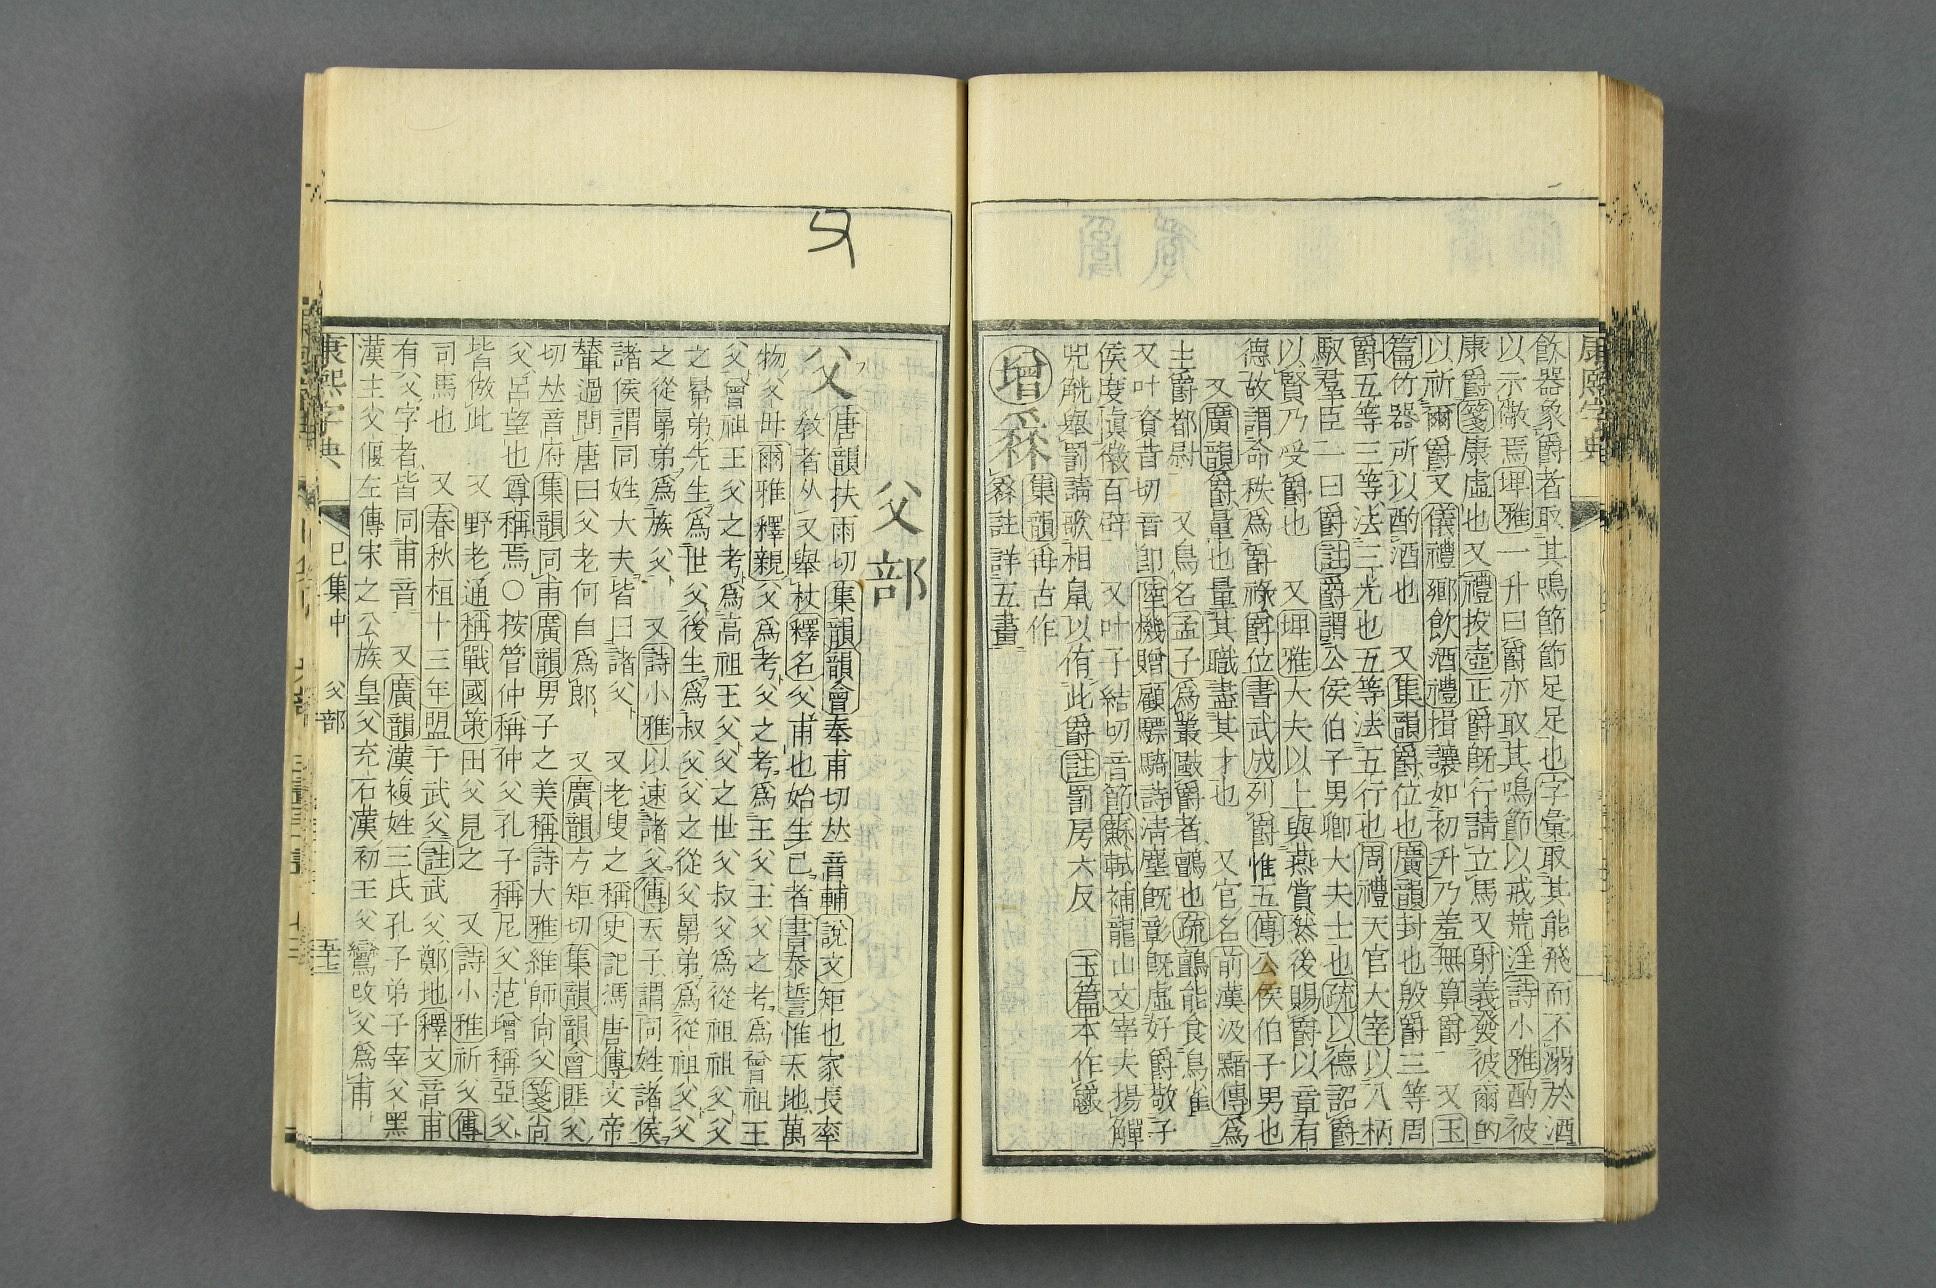 康熙字典
飲器象爵者取其鳴節節足足也字彙取其能飛而不溺於酒
以示儆焉埤雅一升曰爵亦取其鳴節以戒荒淫詩小雅酌彼
康爵箋康虛也又禮投壺正爵旣行請立馬又射義發彼爾的
以祈爾爵又儀禮鄕飮酒禮揖讓如初升乃羞無算爵 又玉
篇竹器所以酌酒也 又集韻爵位也廣韻封也殷爵三等周
爵五等三等法三光也五等法五行也周禮天官大宰以八柄
馭羣臣一曰爵註爵謂公侯伯子男卿大夫士也疏以德詔爵
以賢乃受爵也 又埤雅大夫以上與燕賞然後賜爵以章有
德故謂命秩爲爵祿爵位書武成列爵惟五傳公侯伯子男也
又廣韻爵量也量其職盡其才也 又官名前漢汲黯傳爲
主爵都尉 又鳥名孟子爲叢敺爵者鸇也疏鸇能食鳥雀
又叶資昔切音卽陸機贈顧驃騎詩淸塵旣彰旣虛好爵敬子
侯度愼徽百辟 又叶子結切音節蘇軾補龍山文宰夫揚觶
兕觥舉罰請歌相鼠以侑此爵註罰房六反 玉篇本作
增 集韻再古作
註詳五畫
父
父部
父唐韻扶雨切集韻韻會奉甫切𠀤音輔說文矩也家長率
敎者从又舉杖釋名父甫也始生己者書泰誓惟天地萬
物父母爾雅釋親父爲考父之考爲王父王父之考爲曾祖王
父曾祖王父之考爲高祖王父父之世父叔父爲從祖祖父父
之晜弟先生爲世父後生爲叔父父之從父晜弟爲從祖父父
之從晜弟爲族父 又詩小雅以速諸父傳天子謂同姓諸侯
諸侯謂同姓大夫皆曰諸父 又老叟之稱史記馮唐傳文帝
輦過問唐曰父老何自爲郞 又廣韻方矩切集韻韻會匪父
切𠀤音府集韻同甫廣韻男子之美稱詩大雅維師尙父箋尙
父呂望也尊稱焉○按管仲稱仲父孔子稱尼父范增稱亞父
皆倣此 又野老通稱戰國策田父見之 又詩小雅祈父傳
司馬也 又春秋桓十三年盟于武父註武父鄭地釋文音甫
有父字者皆同甫音 又廣韻漢複姓三氏孔子弟子宰父黑
漢主父偃左傳宋之公族皇父充石漢初王父鸞改父爲甫
康熙字典 巳集中 父部